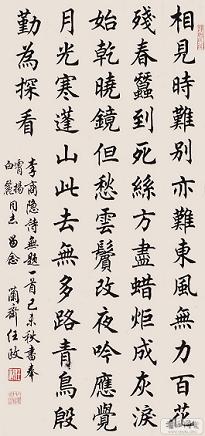 相見時難別亦難東風無力百花
殘春蠶到死絲方盡蜡炬成灰淚
始乾曉鏡但愁雲鬢改夜吟應覺
月光寒蓬山此去無多路青鳥殷
勤為探看
李商隐詩無題一首己未秋書奉
同志留念 蘭齋任政